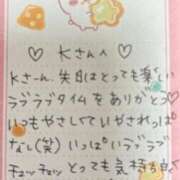 ♡ Kさんへ ♡
Kさーん、先日はとっても楽しい
ラブラブタイムをありがとう♡
いつもやさしくていやされっぱ
なし(笑) いっぱいラブラブ
チュッチュッ とっても気持ち良くて